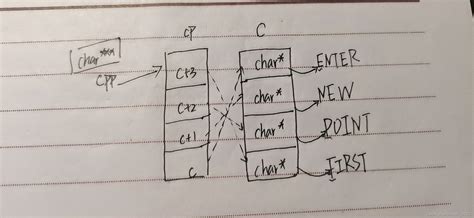 cp C
char***
cpp
c+3 char* ENTER
c+2 char* NEW
c+1 char* POINT
c char* FIRST